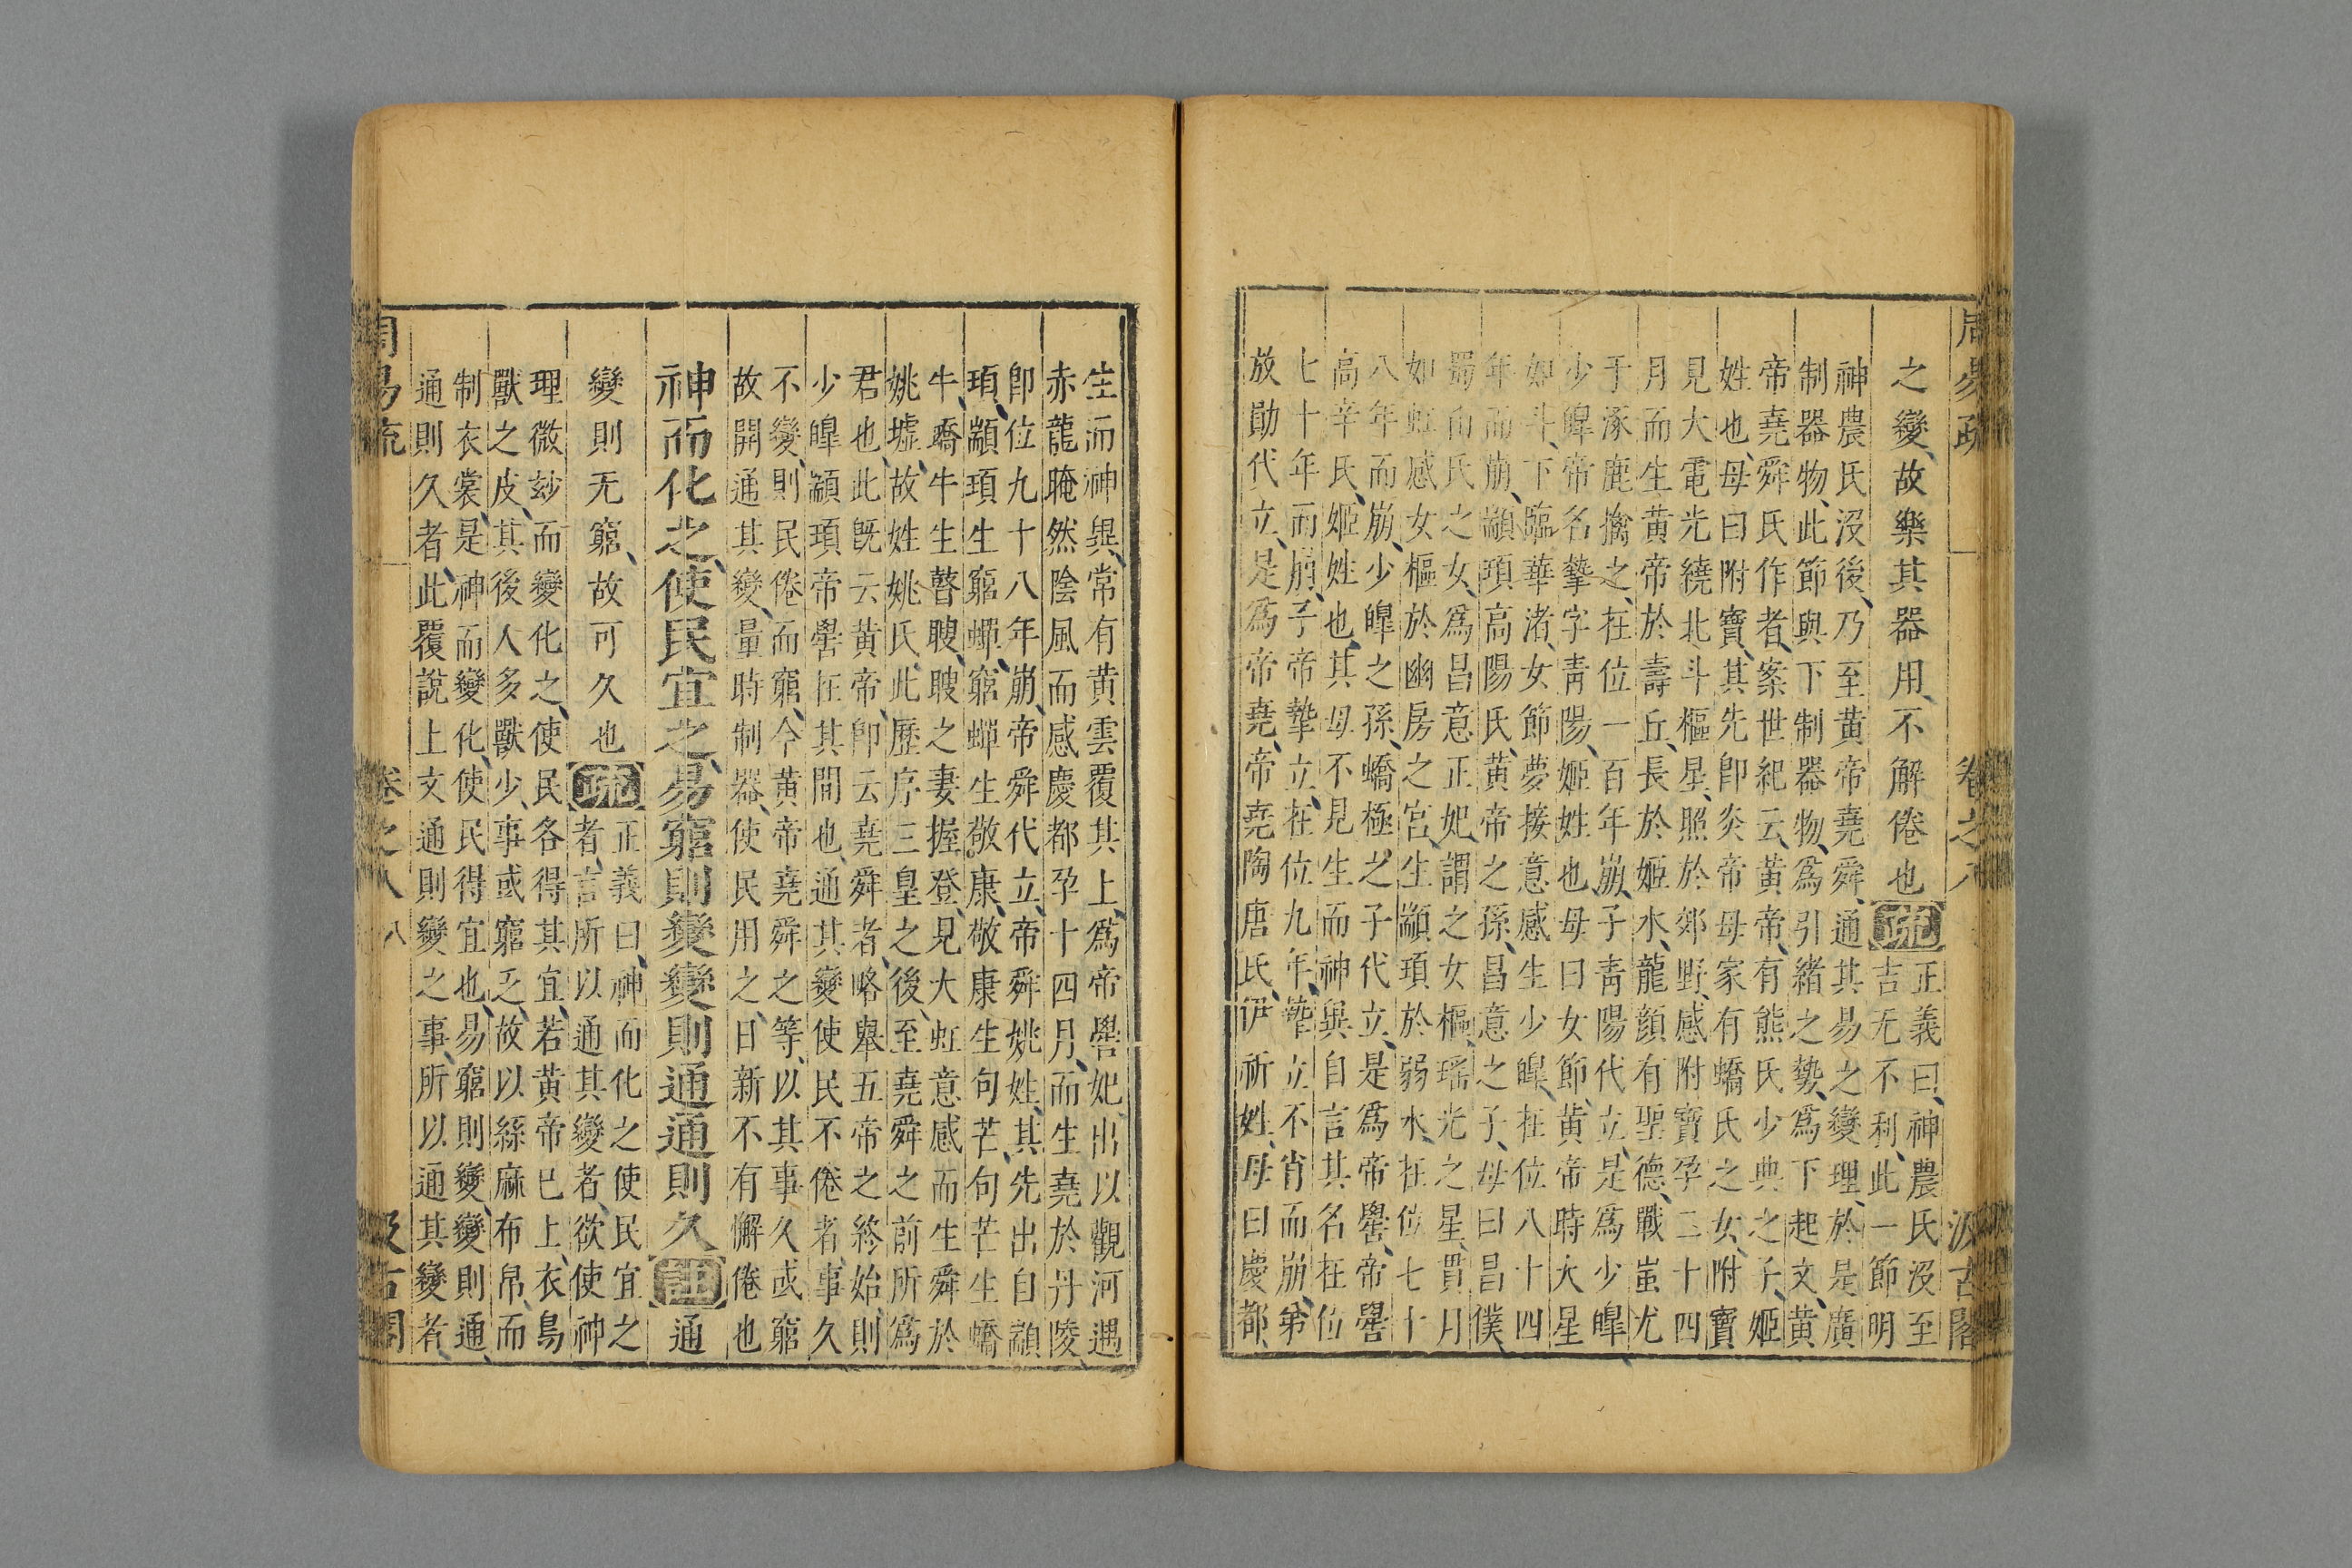 周易疏 卷之八 汲古閣
之變故樂其器用不解倦也疏
正義曰神農氏沒至
吉无不利此一節明
神農氏沒後乃至黃帝堯舜通其易之變理於是廣
制器物此節與下制器物爲引緒之勢爲下起文黃
帝堯舜氏作者案世紀云黃帝有熊氏少典之子姬
姓也母曰附寶其先卽炎帝母家有蟜氏之女附寶
見大電光繞北斗樞星照於郊野感附寶孕二十四
月而生黃帝於壽丘長於姬水龍顏有聖德戰蚩尤
于涿鹿擒之在位一百年崩子靑陽代立是爲少皥
少皥帝名摯字靑陽姬姓也母曰女節黃帝時大星
如斗下臨華渚女節夢接意感生少皥在位八十四
年而崩顓頊高陽氏黃帝之孫昌意之子母曰昌僕
蜀山氏之女爲昌意正妃謂之女樞瑤光之星貫月
如虹感女樞於幽房之宮生顓頊於弱水在位七十
八年而崩少皥之孫蟜極之子代立是爲帝嚳帝嚳
高辛氏姬姓也其母不見生而神異自言其名在位
七十年而崩子帝摯立在位九年摯立不肖而崩弟
放勛代立是爲帝堯帝堯陶唐氏伊祈姓母曰慶都
生而神異常有黃雲覆其上爲帝嚳妃出以觀河遇
赤龍晻然陰風而感慶都孕十四月而生堯於丹陵
卽位九十八年崩帝舜代立帝舜姚姓其先出自顓
頊顓頊生窮蟬窮蟬生敬康敬康生句芒句芒生蟜
牛蟜牛生瞽瞍瞍之妻握登見大虹意感而生舜於
姚墟故姓姚氏此歷序三皇之後至堯舜之前所爲
君也此旣云黃帝卽云堯舜者略舉五帝之終始則
少皥顓頊帝嚳在其閒也通其變使民不倦者事久
不變則民倦而窮今黃帝堯舜之等以其事久或窮
故開通其變量時制器使民用之日新不有懈倦也
神而化之使民宜之易窮則變變則通通則久註通
變則无窮故可久也疏
正義曰神而化之使民宜之
者言所以通其變者欲使神
理微妙而變化之使民各得其宜若黃帝已上衣鳥
獸之皮其後人多獸少事或窮乏故以絲麻布帛而
制衣裳是神而變化使民得宜也易窮則變變則通
通則久者此覆說上文通則變之事所以通其變者
周易疏 卷之八 八 汲古閣